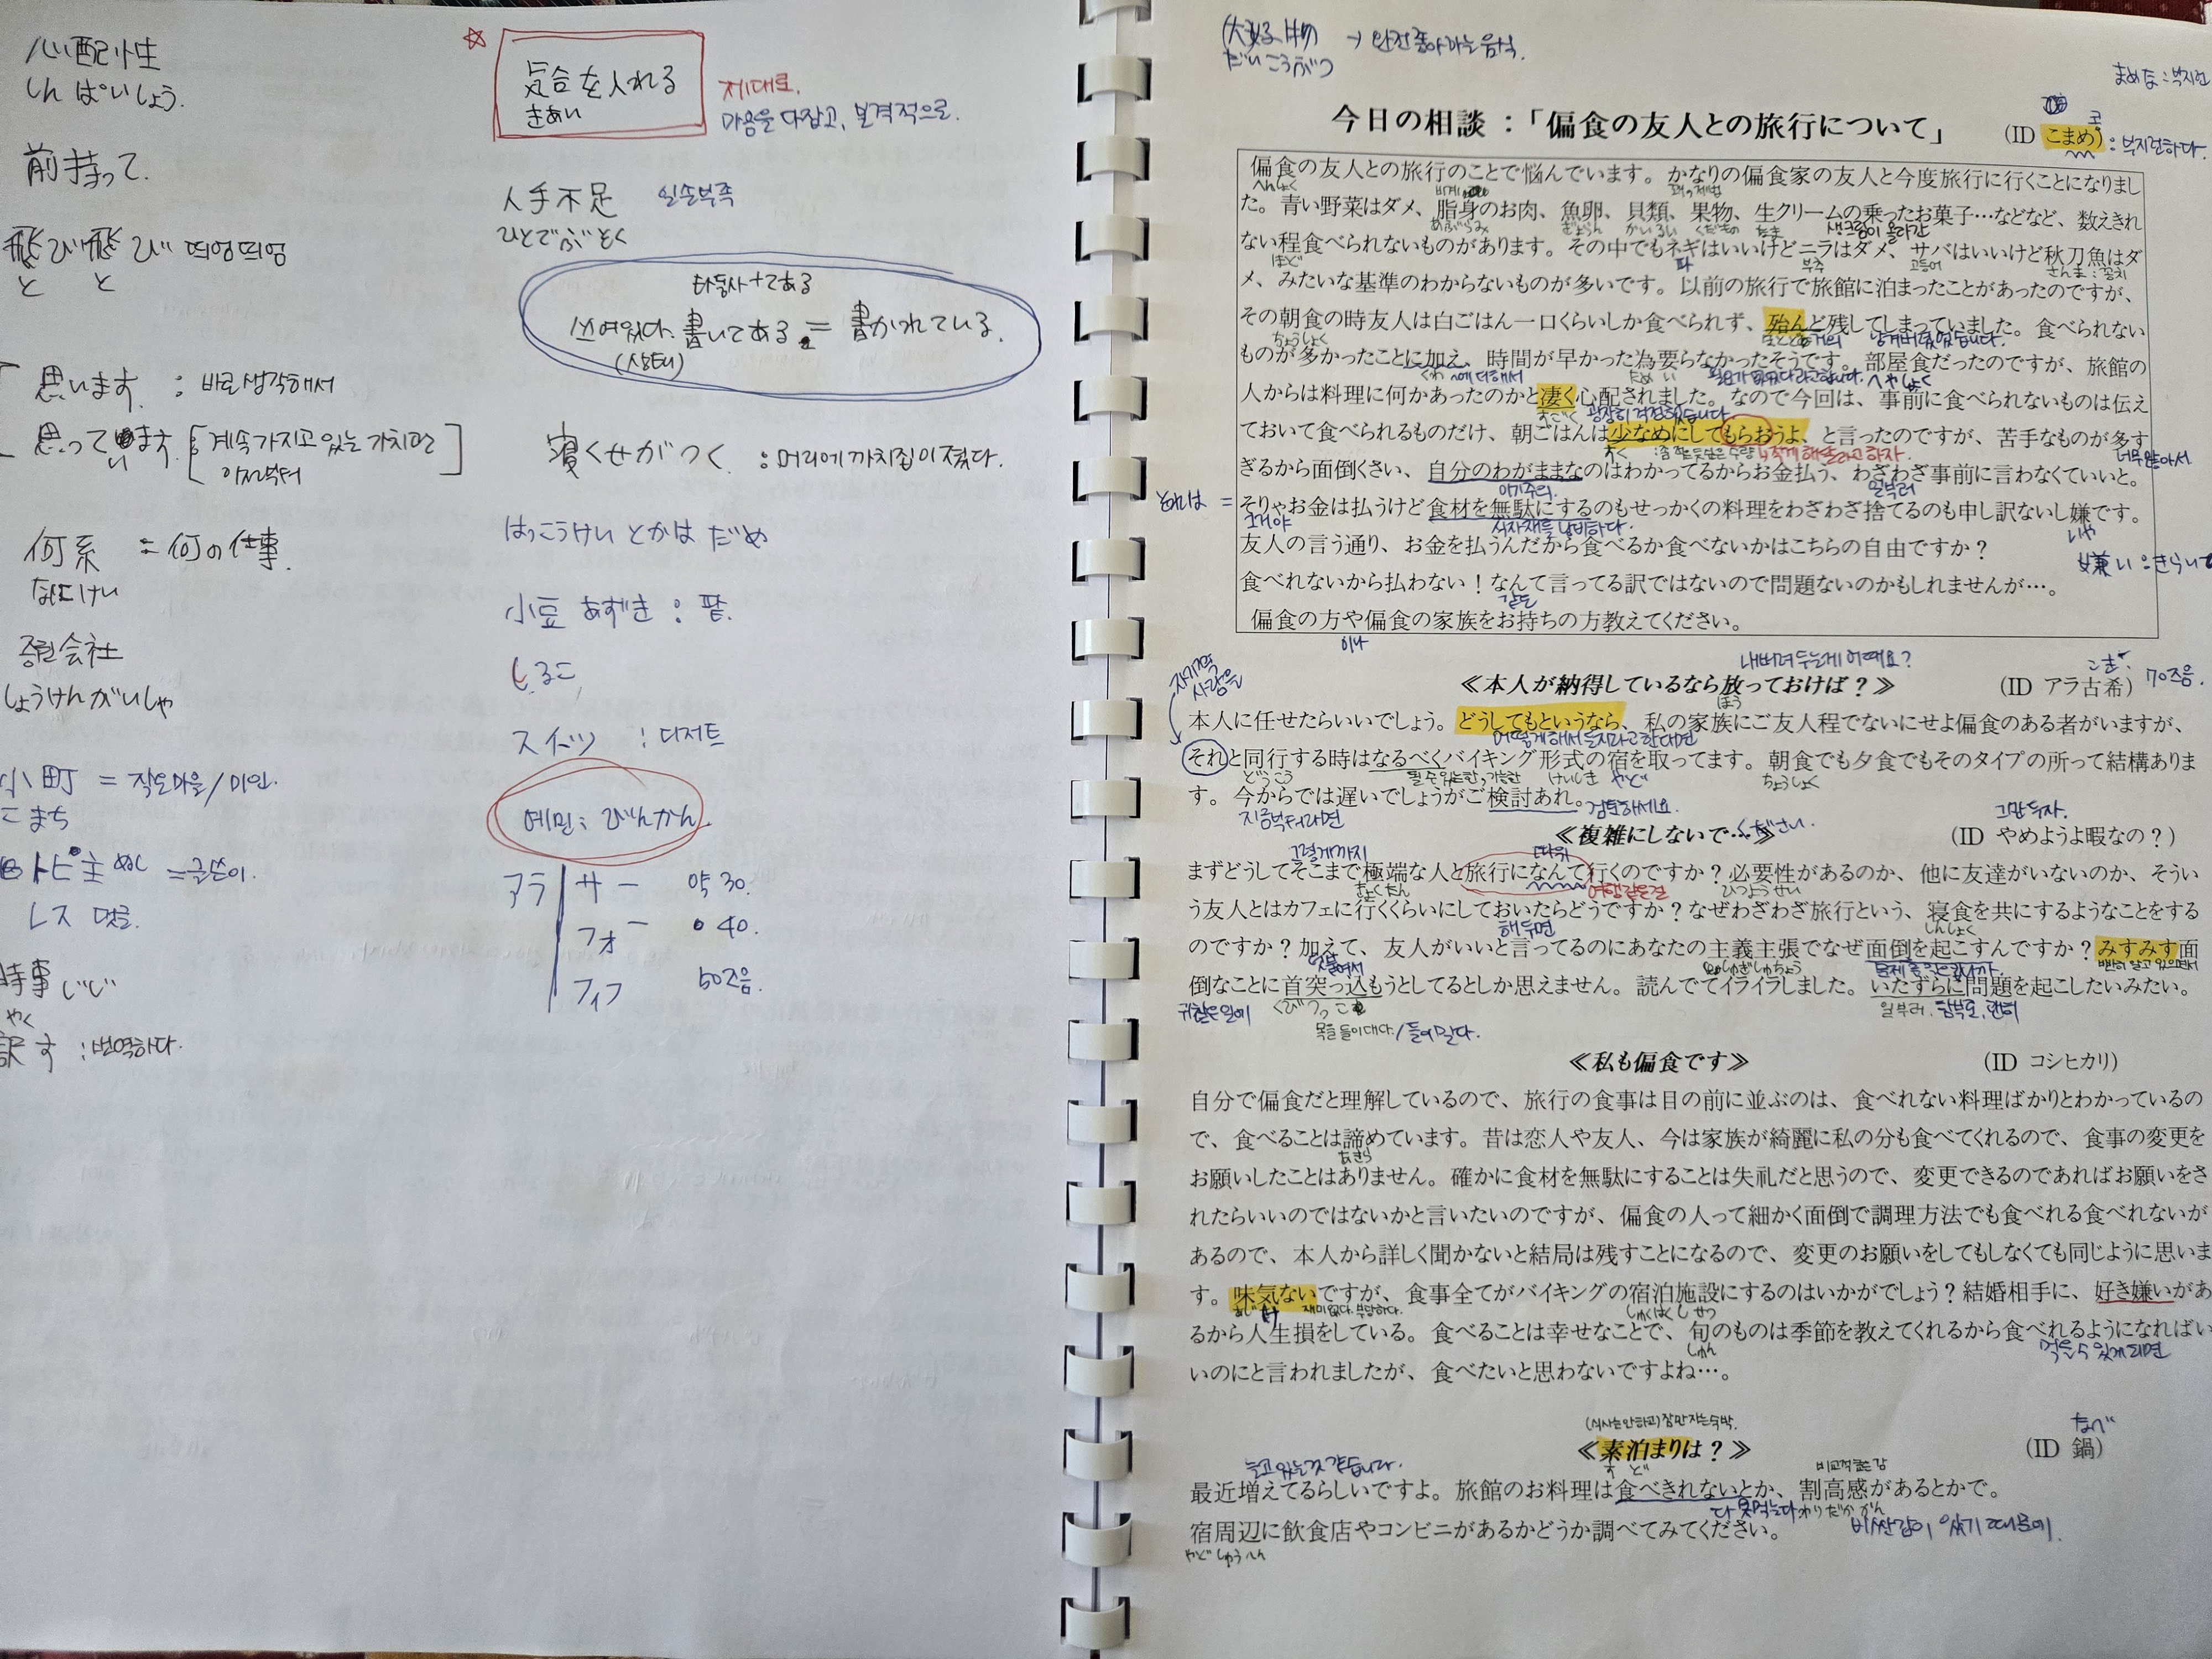 心配性
しんぱいしょう.
前持って.
飛び飛び 띄엄띄엄
と と
思います. : 바로 생각해서
思っています. [계속 가지고 있는 가치관
이전부터]
何系 = 何の仕事.
なにけい
증권会社
しょうけんがいしゃ
小町 = 작은마을/미인.
こまち
トピ主 ぬし =글쓴이.
レス 댓글.
時事 じじ
やく
訳す : 번역하다.
☆ 気合を入れる
きあい
제대로.
마음을 다잡고, 본격적으로.
人手不足 일손부족
ひとでぶそく
타동사+てある
쓰여있다. 書いてある = 書かれている.
(상태)
寝ぐせがつく. : 머리에 까치집이 졌다.
はっこうけい とかは だめ
小豆 あずき : 팥.
しるこ
スイーツ : 디저트
예민: びんかん
アラ サー 약 30.
フォー 40.
フィフ 50즈음.
大好物 → 완전 좋아하는 음식.
だいこうぶつ
まめな : 부지런
今日の相談：「偏食の友人との旅行について」 (ID こまめ) : 부지런하다.
偏食の友人との旅行のことで悩んでいます。かなりの偏食家の友人と今度旅行に行くことになりまし
へんしょく
た。青い野菜はダメ、脂身のお肉、魚卵、貝類、果物、生クリームの乗ったお菓子…などなど、数えきれ
あぶらみ ぎょらん かいるい くだもの なま 생크림이 올라간
ない程食べられないものがあります。その中でもネギはいいけどニラはダメ、サバはいいけど秋刀魚はダ
ほど 파 부추 고등어 さんま : 꽁치
メ、みたいな基準のわからないものが多いです。以前の旅行で旅館に泊まったことがあったのですが、
その朝食の時友人は白ごはん一口くらいしか食べられず、殆んど残してしまっていました。食べられない
ちょうしょく 남겨버렸었습니다.
ものが多かったことに加え、時間が早かった為要らなかったそうです。部屋食だったのですが、旅館の
くわ ~에 더해서 ため い へやしょく
人からは料理に何かあったのかと凄く心配されました。なので今回は、事前に食べられないものは伝え
すごく 굉장히 걱정했습니다
ておいて食べられるものだけ、朝ごはんは少なめにしてもらおうよ、と言ったのですが、苦手なものが多す
너무 많아서
ぎるから面倒くさい、自分のわがままなのはわかってるからお金払う、わざわざ事前に言わなくていいと。
이기주의 일부러
それは = そりゃお金は払うけど食材を無駄にするのもせっかくの料理をわざわざ捨てるのも申し訳ないし嫌です。
그거야 식자재를 낭비하다. いや
友人の言う通り、お金を払うんだから食べるか食べないかはこちらの自由ですか？
嫌い : きらい
食べれないから払わない！なんて言ってる訳ではないので問題ないのかもしれませんが…。
같은
偏食の方や偏食の家族をお持ちの方教えてください。
이나
내버려 두는게 어때요?
≪本人が納得しているなら放っておけば？≫ (ID アラ古希) 70즈음.
ほう こき
本人に任せたらいいでしょう。どうしてもというなら、私の家族にご友人程でないにせよ偏食のある者がいますが、
어떻게 해서든지라고 한다면
それと同行する時はなるべくバイキング形式の宿を取ってます。朝食でも夕食でもそのタイプの所って結構ありま
どうこう けいしき やど ちょうしょく
す。今からでは遅いでしょうがご検討あれ。 검토하세요.
지금부터라면
그만두자.
≪複雑にしないで…≫ください. (ID やめようよ暇なの？)
그렇게까지 따위
まずどうしてそこまで極端な人と旅行になんて行くのですか？必要性があるのか、他に友達がいないのか、そうい
きょくたん 여행같은걸 ひつようせい
う友人とはカフェに行くくらいにしておいたらどうですか？なぜわざわざ旅行という、寝食を共にするようなことをする
해두면 しんしょく
のですか？加えて、友人がいいと言ってるのにあなたの主義主張でなぜ面倒を起こすんですか？みすみす面
덧붙여서 しゅぎしゅちょう 뻔히 알고 있으면서
倒なことに首突っ込もうとしてるとしか思えません。読んでてイライラしました。いたずらに問題を起こしたいみたい。
귀찮은 일에 くびつっこ 일부러, 함부로, 괜히
목을 들이대다./들이밀다.
≪私も偏食です≫ (ID コシヒカリ)
自分で偏食だと理解しているので、旅行の食事は目の前に並ぶのは、食べれない料理ばかりとわかっているの
で、食べることは諦めています。昔は恋人や友人、今は家族が綺麗に私の分も食べてくれるので、食事の変更を
あきら
お願いしたことはありません。確かに食材を無駄にすることは失礼だと思うので、変更できるのであればお願いをさ
れたらいいのではないかと言いたいのですが、偏食の人って細かく面倒で調理方法でも食べれる食べれないが
あるので、本人から詳しく聞かないと結局は残すことになるので、変更のお願いをしてもしなくても同じように思いま
す。味気ないですが、食事全てがバイキングの宿泊施設にするのはいかがでしょう？結婚相手に、好き嫌いがあ
あじけ 재미없다. しゅくはくしせつ
るから人生損をしている。食べることは幸せなことで、旬のものは季節を教えてくれるから食べれるようになればい
しゅん 먹을 수 있게 되면
いのにと言われましたが、食べたいと思わないですよね…。
(식사는 안하고) 잠만 자는 숙박.
≪素泊まりは？≫ (ID 鍋)
す ど なべ
늘고 있는것 같습니다.
最近増えてるらしいですよ。旅館のお料理は食べきれないとか、割高感があるとかで。
다 못먹는다 わりだかかん 비싼감이 있기 때문에.
宿周辺に飲食店やコンビニがあるかどうか調べてみてください。
やど しゅうへん